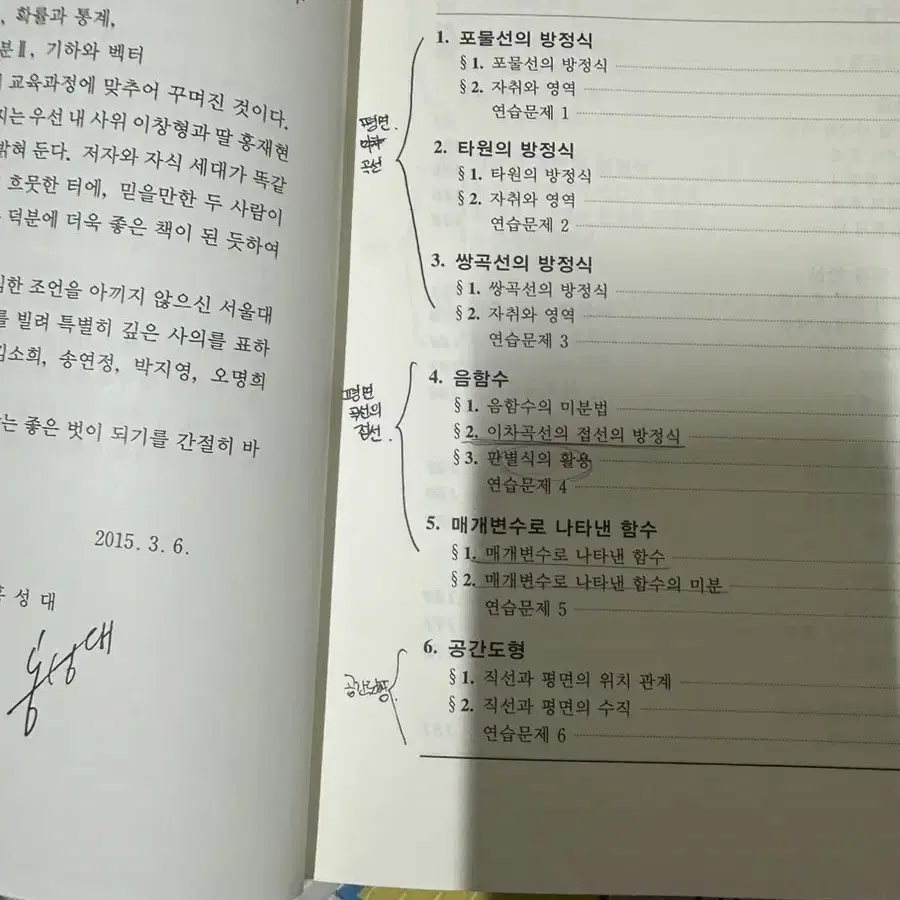 , 확률과 통계,
분Ⅱ, 기하와 벡터
교육과정에 맞추어 꾸며진 것이다.
지는 우선 내 사위 이창형과 딸 홍재현
밝혀 둔다. 저자와 자식 세대가 똑같
흐뭇한 터에, 믿을만한 두 사람이
덕분에 더욱 좋은 책이 된 듯하여
한 조언을 아끼지 않으신 서울대
를 빌려 특별히 깊은 사의를 표하
김소희, 송연정, 박지영, 오명희
는 좋은 벗이 되기를 간절히 바
2015. 3. 6.
홍성대
홍성대
평면
곡선
1. 포물선의 방정식
§1. 포물선의 방정식
§2. 자취와 영역
연습문제 1
2. 타원의 방정식
§1. 타원의 방정식
§2. 자취와 영역
연습문제 2
3. 쌍곡선의 방정식
§1. 쌍곡선의 방정식
§2. 자취와 영역
연습문제 3
평면
곡선의
접선.
4. 음함수
§1. 음함수의 미분법
§2. 이차곡선의 접선의 방정식
§3. 판별식의 활용
연습문제 4
5. 매개변수로 나타낸 함수
§1. 매개변수로 나타낸 함수
§2. 매개변수로 나타낸 함수의 미분
연습문제 5
공간도형.
6. 공간도형
§1. 직선과 평면의 위치 관계
§2. 직선과 평면의 수직
연습문제 6